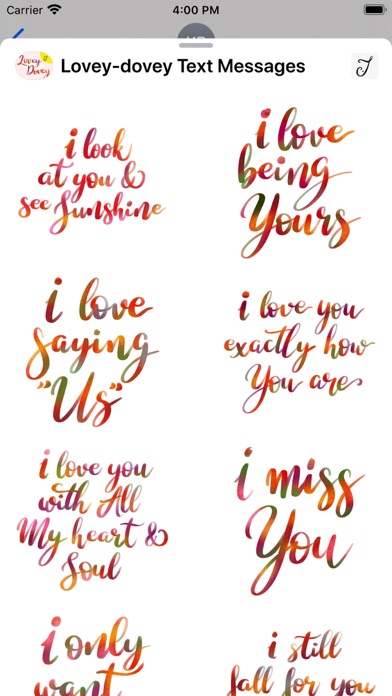 Carrier 4:00 PM
Lovey Dovey Lovey-dovey Text Messages
i look
at you &
see Sunshine
i love
being
Yours
i love
Saying
"Us"
i love you
exactly how
You are
i love you
with All
My heart &
Soul
i miss
You
i only
want
i still
fall for you